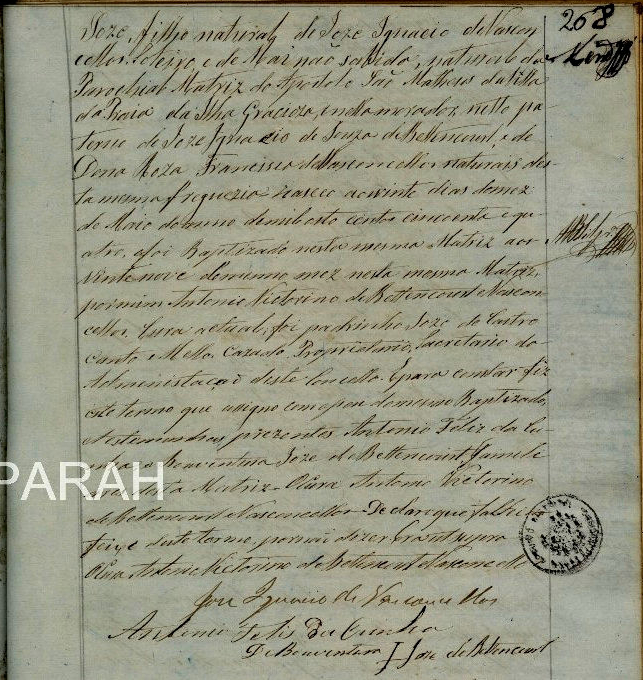 268
Joze, filho natural de Joze Ignacio de Vascon
cellos, solteiro, e de Mai não sabida, natural da
Parochial Matriz do Apostolo São Matheus da Villa
da Praia da Ilha Gracioza, onde morador, netto pa
terno de Joze Ignacio de Souza de Bettencourt, e de
Dona Roza Francisca de Vasconcellos naturais des
ta mesma freguezia nasceo aos vinte dias do mez
de Maio do anno de mil oito centos cincoenta e qu
atro, e foi Baptizado nesta mesma Matriz aos
vinte nove do mesmo mez nesta mesma Matriz,
por mim Antonio Victorino de Bettencourt Vascon
cellos, Cura actual, foi padrinho Joze de Castro
Canto e Mello, Cazado, Proprietario, Secretario da
Administração deste Concelho. E para constar fiz
este termo que asigno com o pai do mesmo Baptizado,
e testemunhas prezentes Antonio Feliz da Cu
nha e Boaventura Joze de Bettencourt
desta Matriz. O Cura Antonio Victorino
de Bettencourt Vasconcellos. Declaro que
deste termo, por mi dizer Era ut supra
O Cura Antonio Victorino de Bettencourt Vasconcellos
José Ignacio de Vasconcellos
Antonio Felis da Cunha
De Boaventura Joze de Betencourt
PARAH